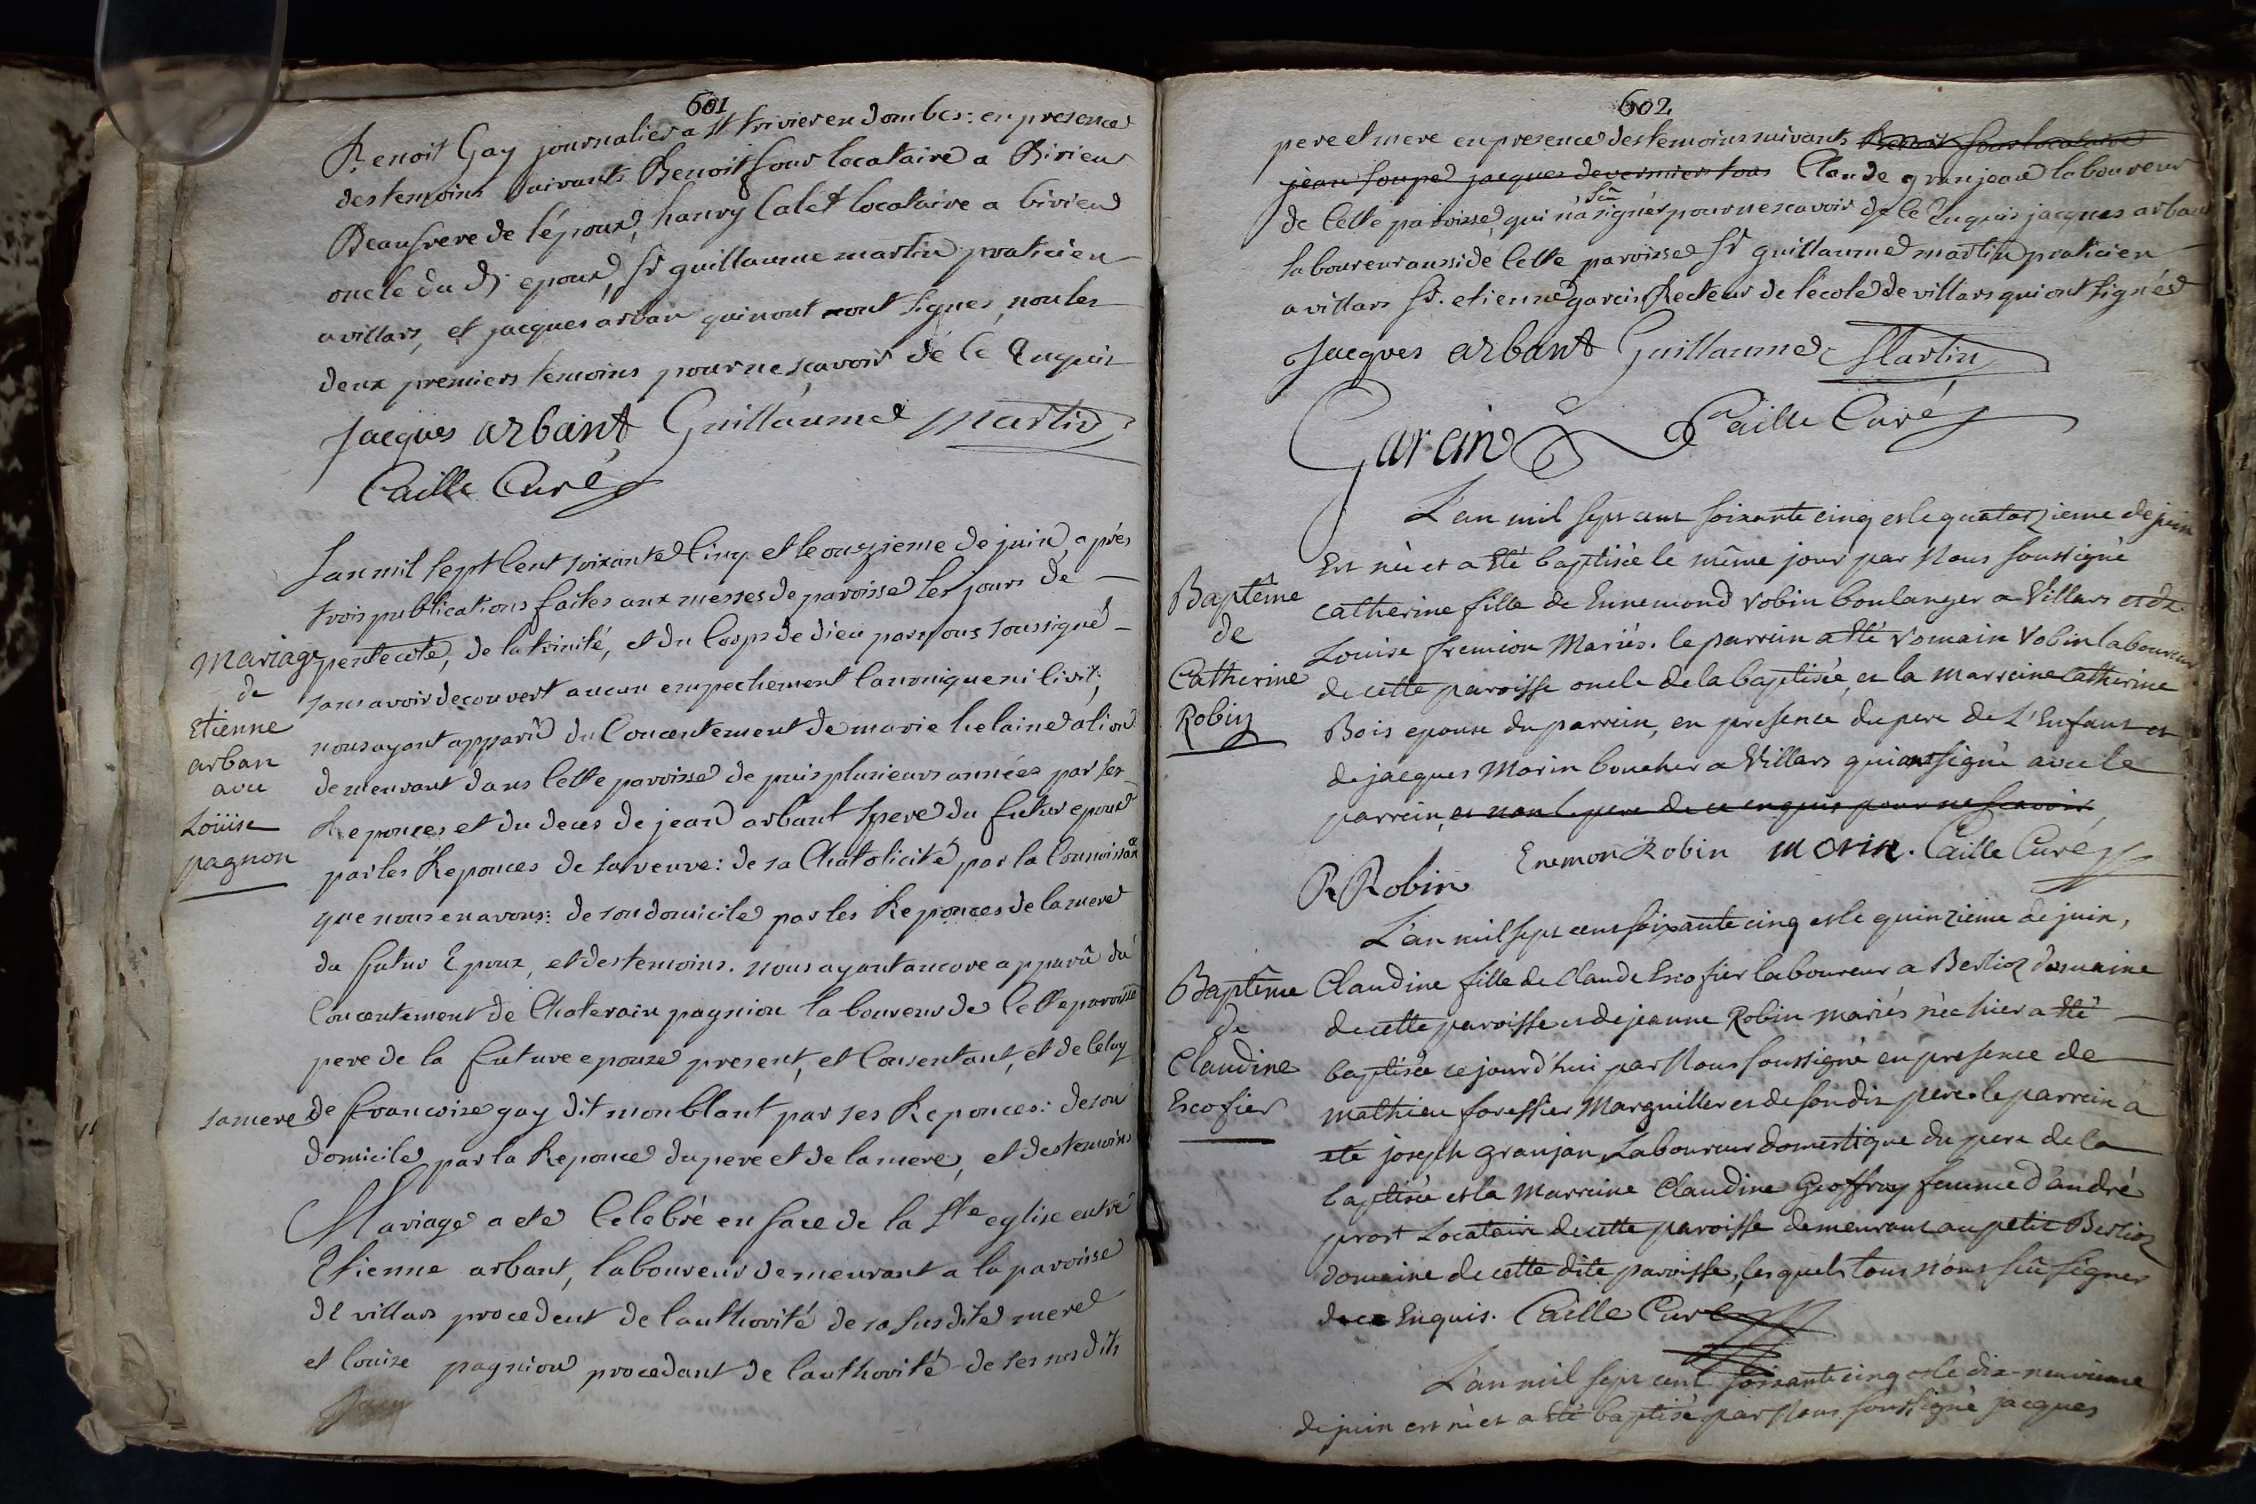 601
Benoit Gay journalier a St trivier en dombes: en presence
des temoins suivants Benoit four locataire a Birieu
Beaufrere de l'époux, hanry Calet locataire a birieu
oncle du dt epoux, Sr guillaume martin praticien
a villars, et jacques arban qui nont ont signes, non les
deux premiers temoins pour ne sçavoir de ce Enquis
Jacques arbant Guillaume Martin
Caille Curé
Mariage
de
Etienne
arban
avec
Loüise
pagnon
Lan mil sept Cent soixante Cinq et le onzieme de juin, après
trois publications faites aux messes de paroisse les jours de
pentecote, de la trinité, et du Corps de dieu par nous soussigné
sans avoir decouvert aucun empechement Canonique ni Civil;
nous ayant apparû du Concentement de marie helaine alion
demeurant dans Cette paroisse de puis plusieurs années par ses
Reponces et du deces de jean arbant pere du futur epoux
par les Reponces de sa veuve: de sa Chatolicité par la Connoissance
que nous en avons: de son domicile par les Reponces de la mere
du futur Epoux, et des temoins. nous ayant ancore apparû du
Concentement de Chaterain pagnion laboureur de Cette paroisse
pere de la future epouse present, et Consentant, et de Celuy
sa mere de francoise gay dit monblant par ses Reponces: de son
domicile par la Reponce du pere et de la mere, et des temoins
Mariage a ete Celebré en face de la Ste eglise entre
Etienne arbant, laboureur demeurant a la paroisse
de villars procedent de lauthorité de sa susdite mere
et louise pagnion procedant de lauthorité de ses susdits
602
pere et mere en presence des temoins suivants Benoit four locataire
jean soupe jacques devernier tous Claude granjean laboureur
de Cette paroisse, qui n'a sû signer pour ne scavoir de ce Enquis jacques arban
laboureur aussi de Cette paroisse Sr guillaume martin praticien
a villars Sr. etienne garein Recteur de l'ecole de villars qui ont signés
Jacques arbant Guillaume Martin
Garein Caille Curé
Baptême
de
Catherine
Robin
L'an mil sept cent soixante cinq et le quatorzieme de juin
Est née et a été baptisée le même jour par Nous soussigné
Catherine fille de Ennemond Robin boulanger a Villars et de
Louise fremion Mariés. le parrein a été Romain Robin laboureur
de cette paroisse oncle de la baptisée, et la Marreine Catherine
Bois epouse du parrein, en presence du pere de L'Enfant et
de jacques Morin boucher a Villars qui ont signé avec le
parrein, et non le pere de ce enquis pour ne scavoir
Enemon Robin Morin. Caille Curé
R Robin
Baptême
de
Claudine
Escofier
L'an mil sept cent soixante cinq et le quinzieme de juin,
Claudine fille de Claude Escofier laboureur a Berlioz domaine
de cette paroisse et de jeanne Robin mariés née hier a été
baptisée ce jourd'hui par Nous soussigné en presence de
Mathieu foressier Marguillier et de son dit pere. le parrein a
eté joseph granjan, Laboureur domestique du pere de la
baptisée et la Marreine Claudine Geoffray femme d'andré
prost Locataire de cette paroisse demeurant au petit Berlioz
domaine de cette dite paroisse, lesquels tous n'ont sçû signer
de ce Enquis. Caille Curé
L'an mil sept cent soixante cinq et le dix-neuvieme
de juin est né et a été baptisé par Nous soussigné jacques